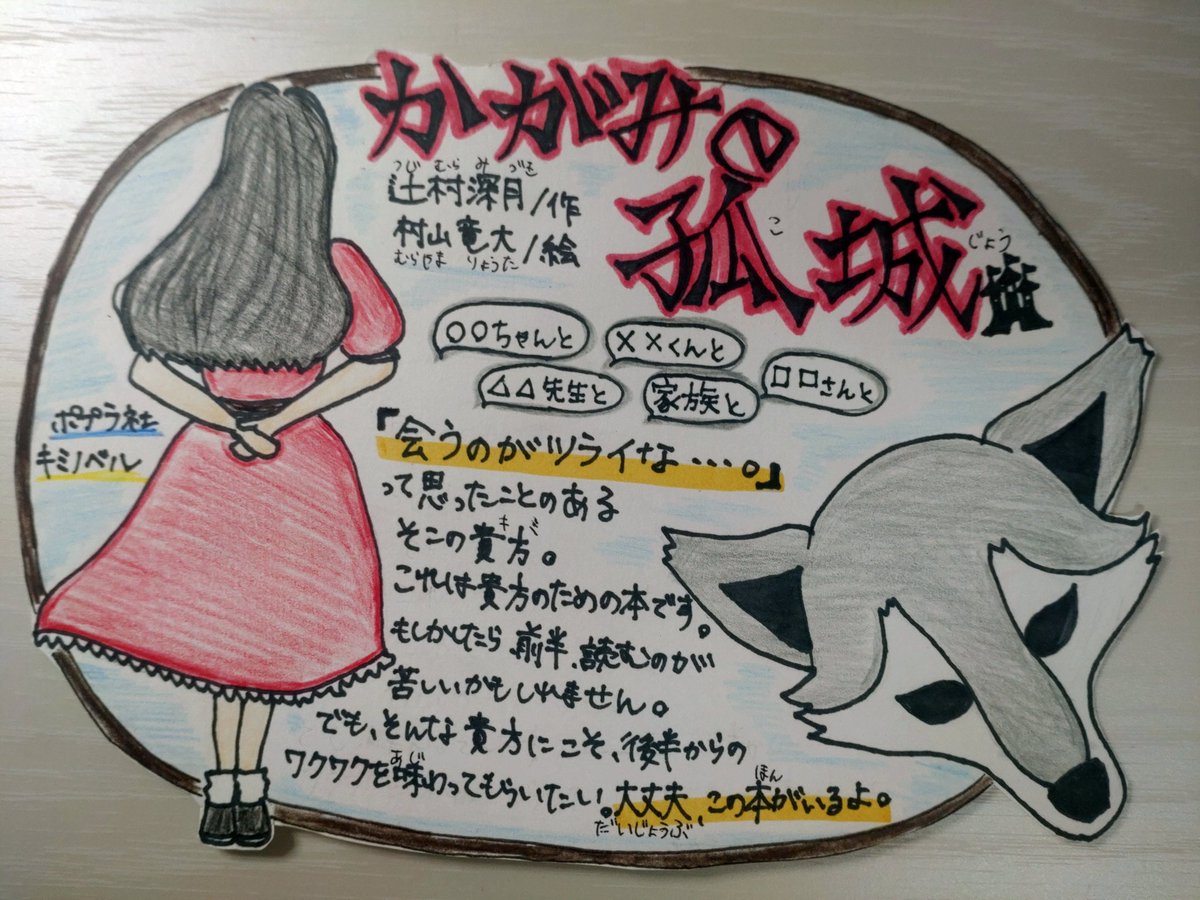 かがみの
孤城
こ
じょう
つじむらみづき
辻村深月/作
村山竜大/絵
むらやま りょうた
○○ちゃんと
××くんと
△△先生と
家族と
□□さんと
ポプラ社
キミノベル
「会うのがツライな…。」
って思ったことのある
キミ
そこの貴方。
これは貴方のための本です。
もしかしたら、前半、読むのが
苦しいかもしれません。
でも、そんな貴方にこそ、後半からの
あじ
ワクワクを味わってもらいたい。
ほん
大丈夫、この本がいるよ。
だいじょうぶ